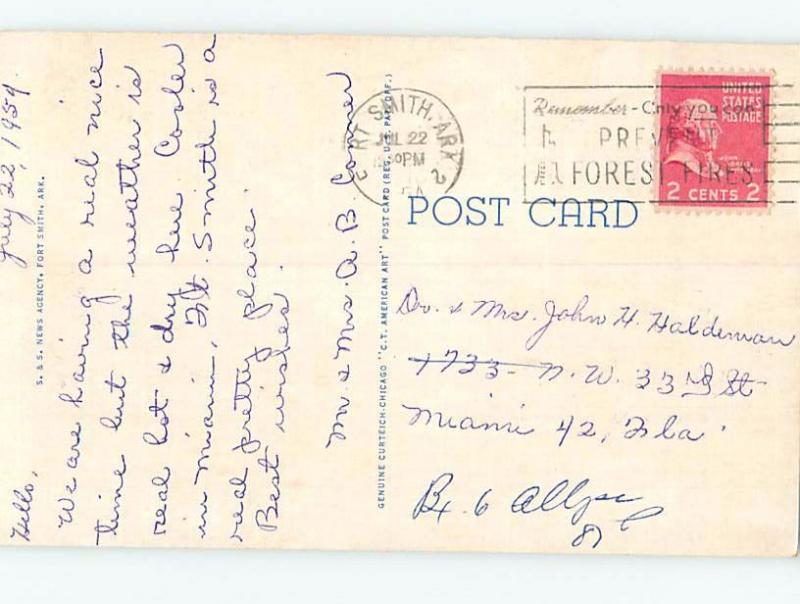 July 22, 1954.
Hello,
We are having a real nice
time but the weather is
real hot & dry here Cooler
in Miami, Ft. Smith is a
real pretty place.
Best wishes.
Mr. & Mrs. A. B. Conner
S. & S. NEWS AGENCY, FORT SMITH, ARK.
GENUINE CURTEICH-CHICAGO "C.T. AMERICAN ART" POST CARD (REG. U.S. PAT. OFF.)
RT SMITH, ARK
JUL 22
30 PM
Remember - Only you can
PREVENT
FOREST FIRES
UNITED
STATES
POSTAGE
2 CENTS 2
POST CARD
Dr. & Mrs. John H. Haldeman
1733 - N.W. 33rd St
Miami 42, Fla.